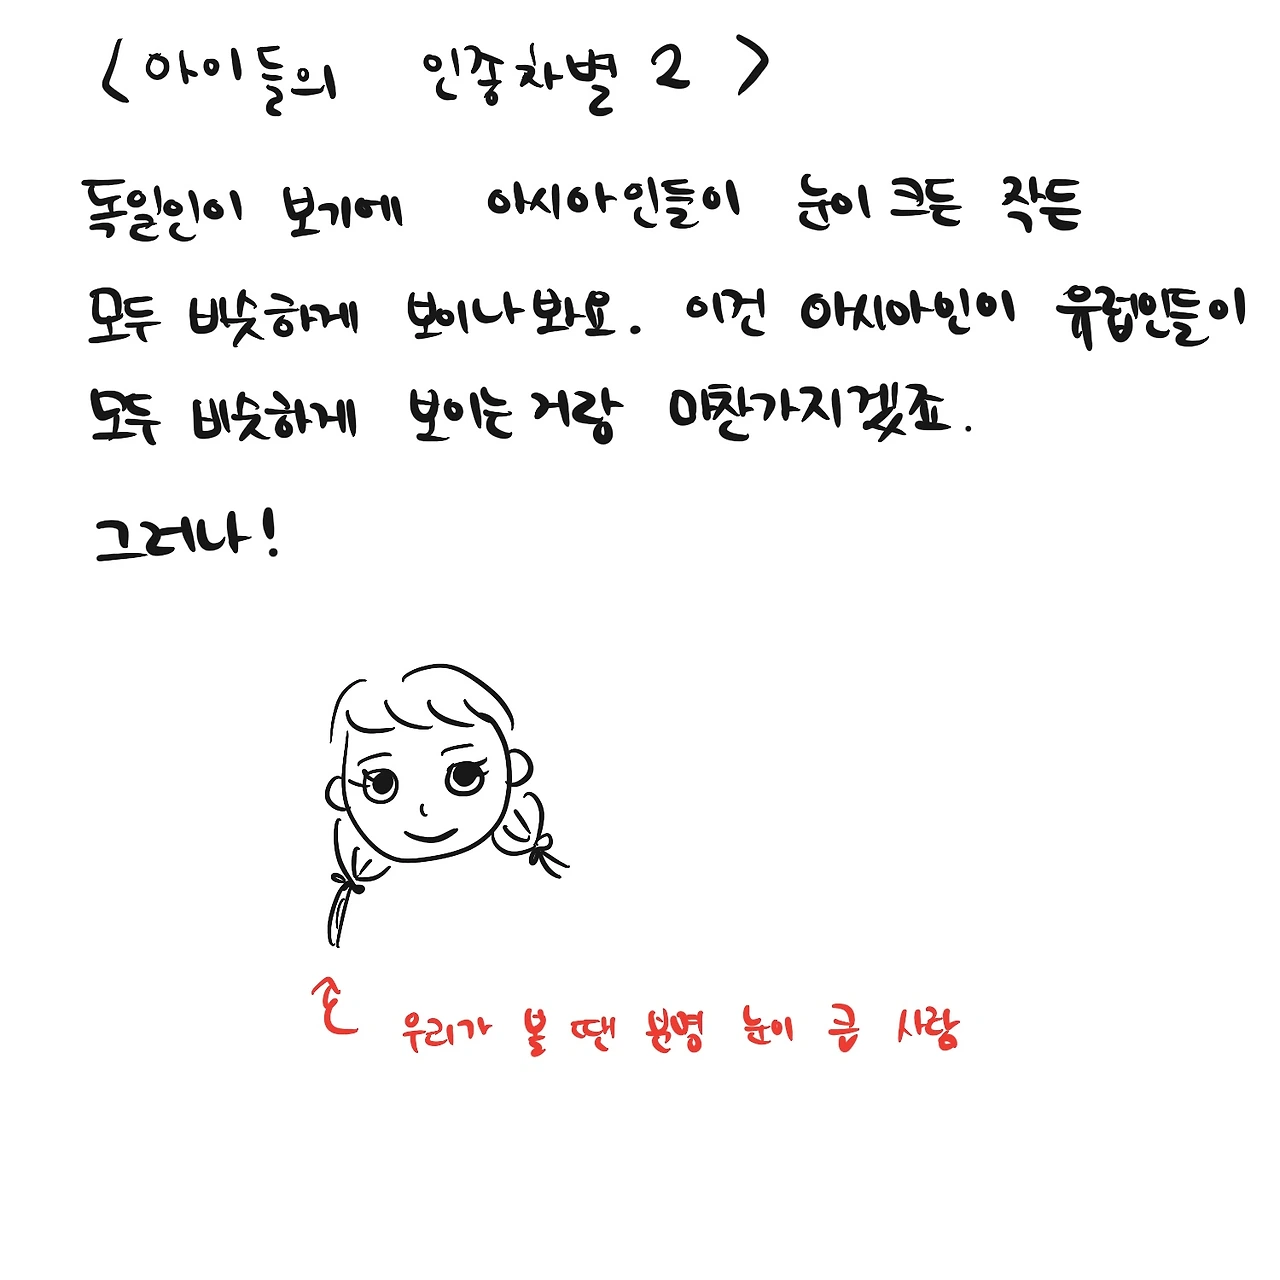 <아이들의 인종차별 2>
독일인이 보기에 아시아인들이 눈이 크든 작든
모두 비슷하게 보이나 봐요. 이건 아시아인이 유럽인들이
모두 비슷하게 보이는 거랑 마찬가지겠죠.
그러나!
우리가 볼 땐 분명 눈이 큰 사람